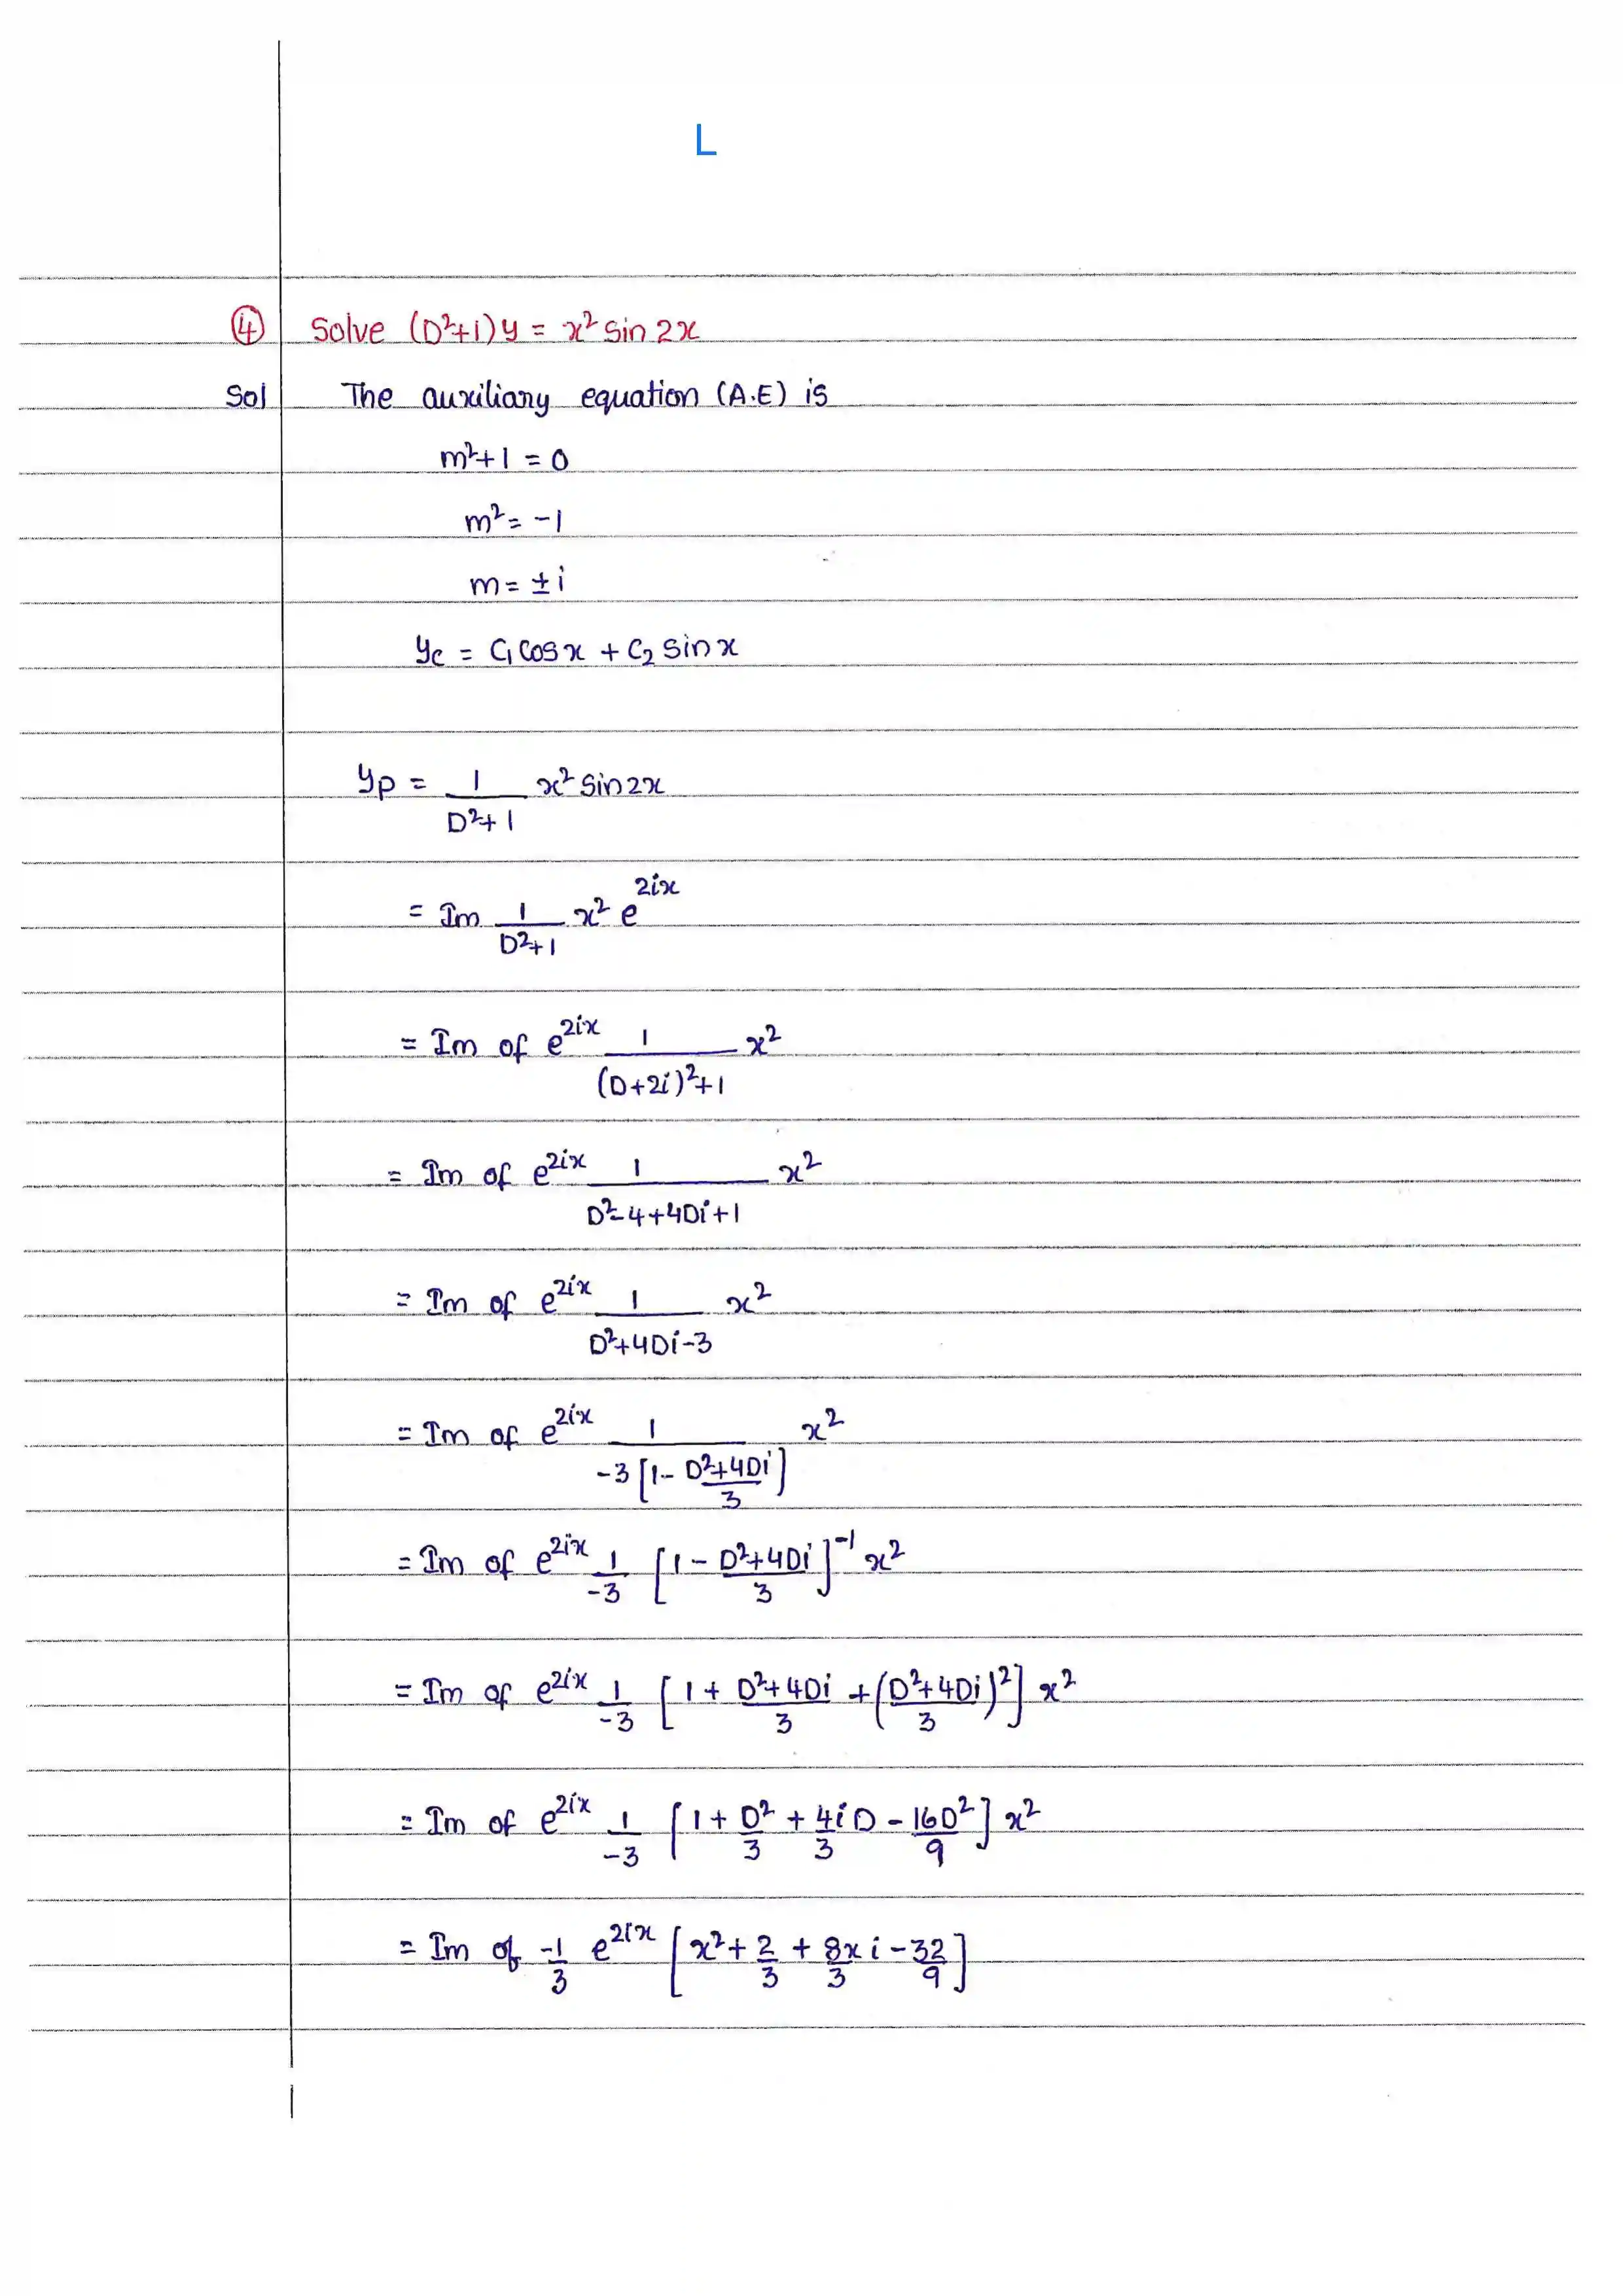 L
④ Solve (D²+1)y = x² sin 2x
Sol The auxiliary equation (A.E) is
m²+1 = 0
m² = -1
m = ± i
yc = C₁ Cos x + C₂ Sin x
yp = 1/(D²+1) x² Sin 2x
= Im 1/(D²+1) x² e^(2ix)
= Im of e^(2ix) 1/((D+2i)²+1) x²
= Im of e^(2ix) 1/(D²-4+4Di+1) x²
= Im of e^(2ix) 1/(D²+4Di-3) x²
= Im of e^(2ix) 1/(-3[1- (D²+4Di)/3]) x²
= Im of e^(2ix) 1/-3 [1 - (D²+4Di)/3]^(-1) x²
= Im of e^(2ix) 1/-3 [1 + (D²+4Di)/3 + ((D²+4Di)/3)²] x²
= Im of e^(2ix) 1/-3 [1 + D²/3 + 4iD/3 - 16D²/9] x²
= Im of -1/3 e^(2ix) [x² + 2/3 + 8xi/3 - 32/9]